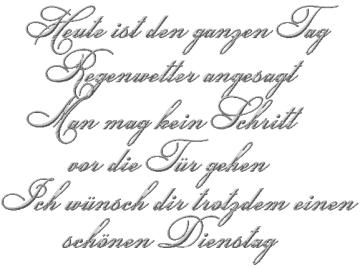 Heute ist den ganzen Tag
Regenwetter angesagt
Man mag kein Schritt
vor die Tür gehen
Ich wünsch dir trotzdem einen
schönen Dienstag